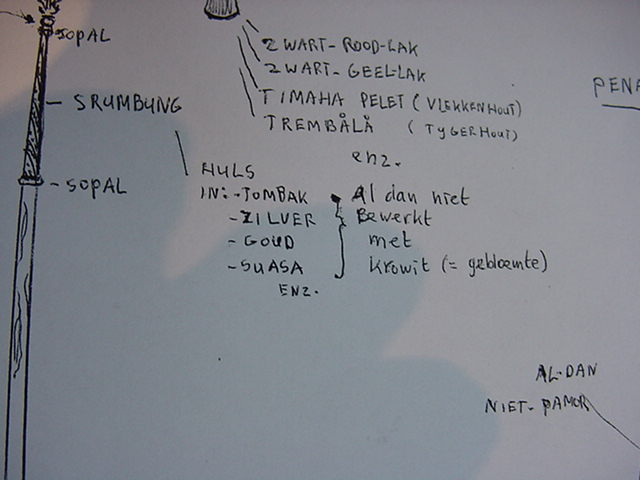 SOPAL
ZWART-ROOD-LAK
ZWART-GEEL-LAK
TIMAHA PELET (VLEKKENHOUT)
TREMBÅLÅ (TYGERHOUT)
enz.
PENA
SRUMBUNG
HULS
SOPAL
IN:-TOMBAK Al dan niet
-ZILVER Bewerkt
-GOUD met
-SUASA Krowit (= gebloemte)
ENZ.
AL-DAN
NIET-PAMOR